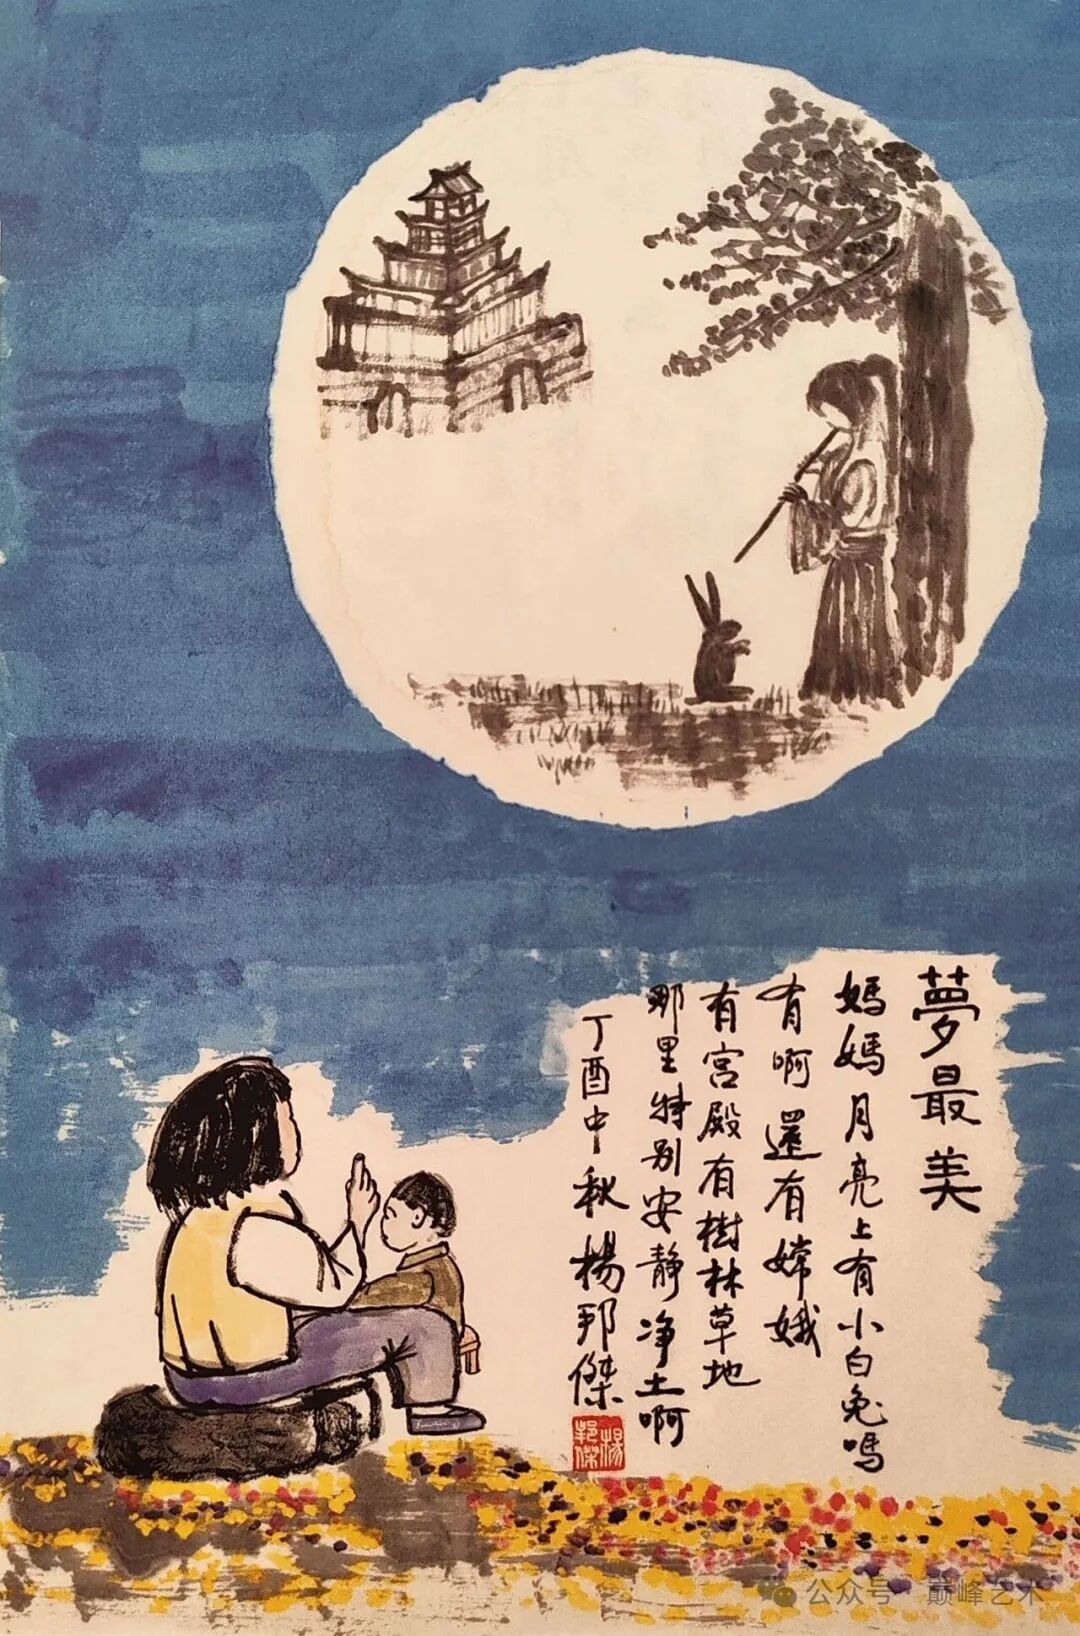 夢最美
媽媽月亮上有小白兔嗎
有啊還有嫦娥
有宫殿有樹林草地
那里特别安静净土啊
丁酉中秋楊邦傑
楊邦傑
公众号 · 巅峰艺术